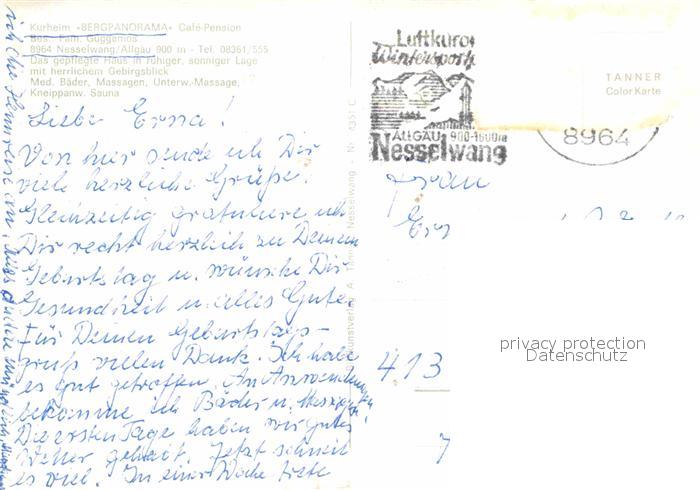 Kurheim «BERGPANORAMA» Café-Pension
Bes. Fam. Guggemos
8964 Nesselwang/Allgäu 900 m - Tel. 08361/555
Das gepflegte Haus in ruhiger, sonniger Lage
mit herrlichem Gebirgsblick
Med. Bäder, Massagen, Unterw.-Massage,
Kneippanw. Sauna
Liebe Erna!
Von hier sende ich Dir
viele herzliche Grüße.
Gleichzeitig gratuliere ich
Dir recht herzlich zu Deinem
Geburtstag u. wünsche Dir
Gesundheit u. alles Gute.
Für Deinen Geburtstags-
gruß vielen Dank. Ich habe
es gut getroffen. An Anwendungen
bekomme ich Bäder u. Massagen.
Die ersten Tage haben wir gutes
Wetter gehabt. Jetzt schneit
es viel. In einer Woche trete
ich die Heimreise an.
Kunstverlag A. Tanner Nesselwang - Nr. 4351 C
Luftkurort
Wintersport
ALLGÄU 900-1600m
Nesselwang
8964
TANNER
ColorKarte
Frau
Er
413
7
privacy protection
Datenschutz